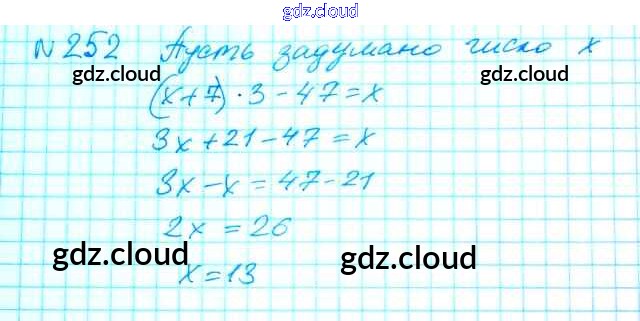 gdz.cloud
N 252 Пусть задумано число x
gdz.cloud gdz.cloud
(x+7)·3-47=x
3x+21-47=x
3x-x=47-21
2x=26
gdz.cloud gdz.cloud
x=13